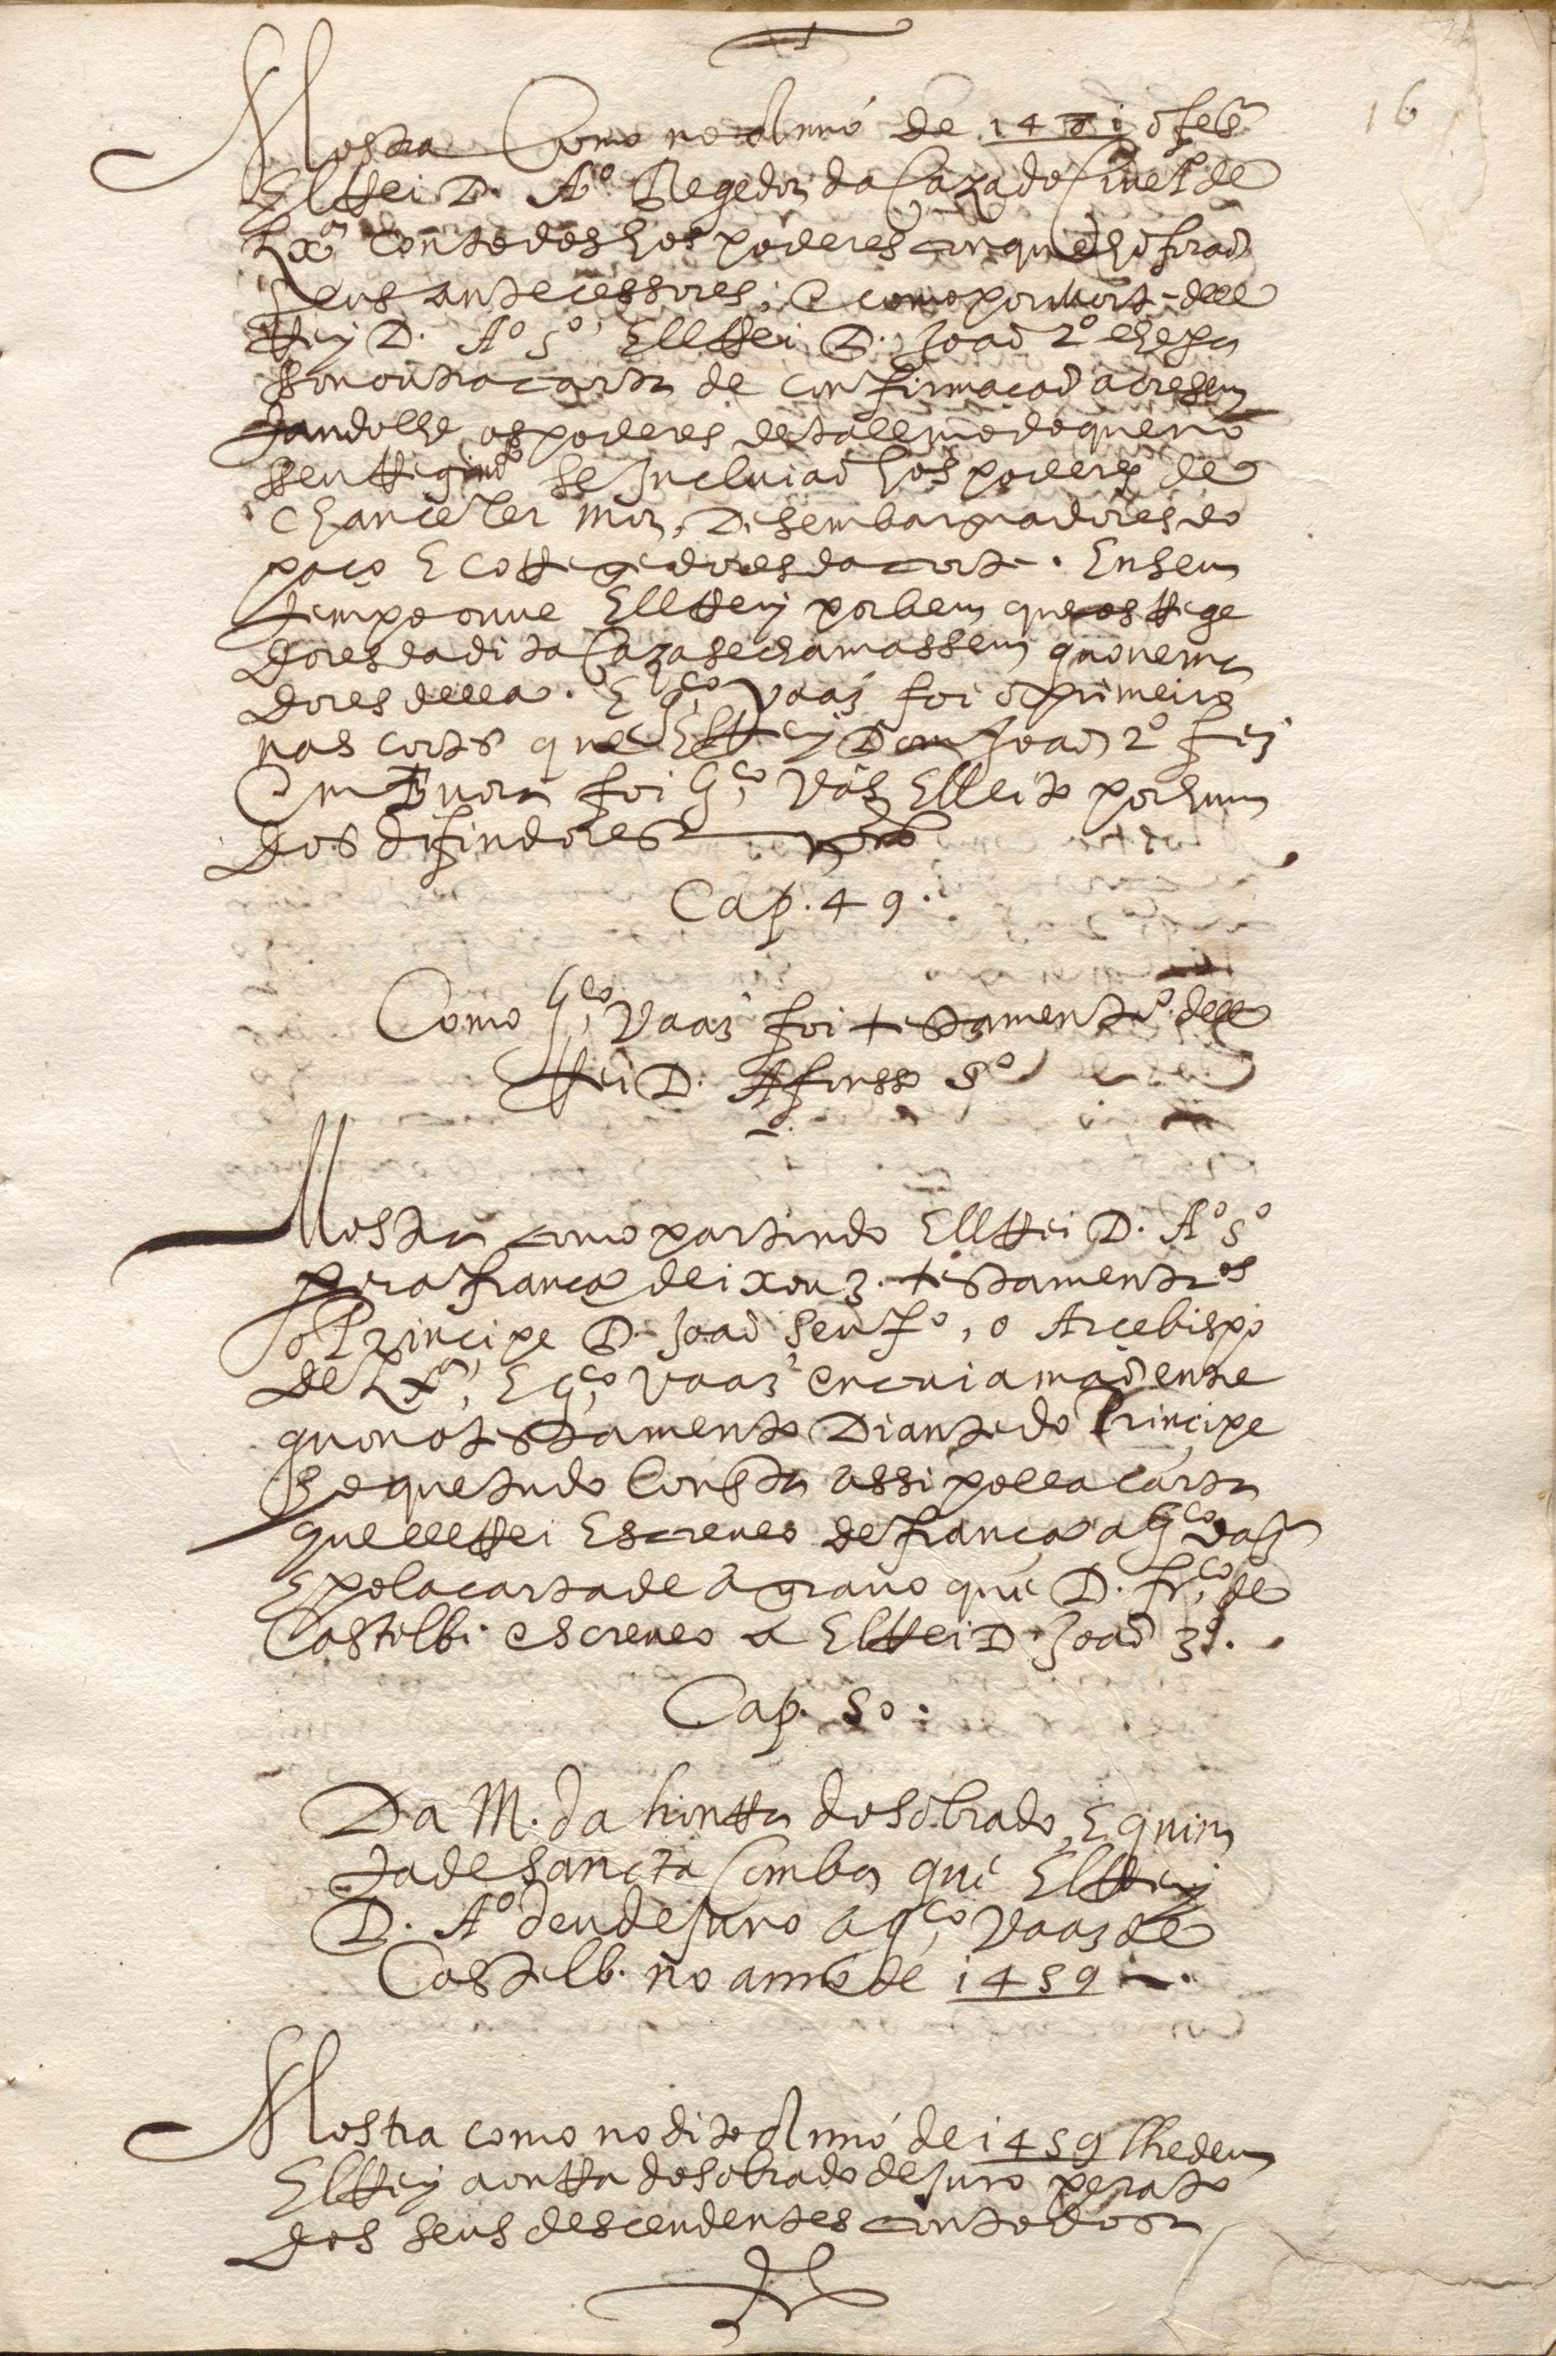 16
Mostra Como no Anno de 1471 o fes
ElRei D. Aº Regedor da Caza do Civel de
Lxª Con todos hos poderes con que ho forão
seus antecessores, E como por mort- delle
Rey D. Aº 5º, ElRei D. Joaõ 2º lhe pa
ssou outra carta de confirmacaõ acresen
tando lhe os poderes de tall modo que no
seu Regimdo se Incluiaõ hos poderes de
chanceler mor, Desembarguadores do
paço E Corregedores da corte. En seu
tempo ouve ElRey por bem que os Rege
dores da dita Caza se chamassem guoverna
dores della. E Gco, Vaaz foi o primeiro
nas cortes que ElRey Dom Joaõ 2º fez
em Evora foi Gco, Vãs Elleito por hum
dos difindores
Cap. 49.
Como Gco, Vaaz foi testamentrº delle
Rei D. Afonsso 5º
Mostra como partindo ElRei D. Aº 5º
pera franca deixou 3. testamentros
o Principe D. Joaõ seu fº, o Arcebispo
de Lxª, E Gco, Vaaz en cuia maõ entre
guou o testamento Diante do Principe
o que tudo Consta assi pella carta
que elRei Escreveo de franca a Gco, Vaz
E pola carta de agravo que D. frco, de
Castelbr. escreveo a ElRei D. Joaõ 3º.
Cap. 50.
Da M. da horta do sobrado, E quin
ta de Sancta Comba que ElRey
D. Aº deu de Juro a Gco, Vaaz de
Castelb. no anno de 1459
Mostra como no dito Anno de 1459 lhe deu
ElRey a orta do sobrado de Juro pera to
dos seus descendentes con todos